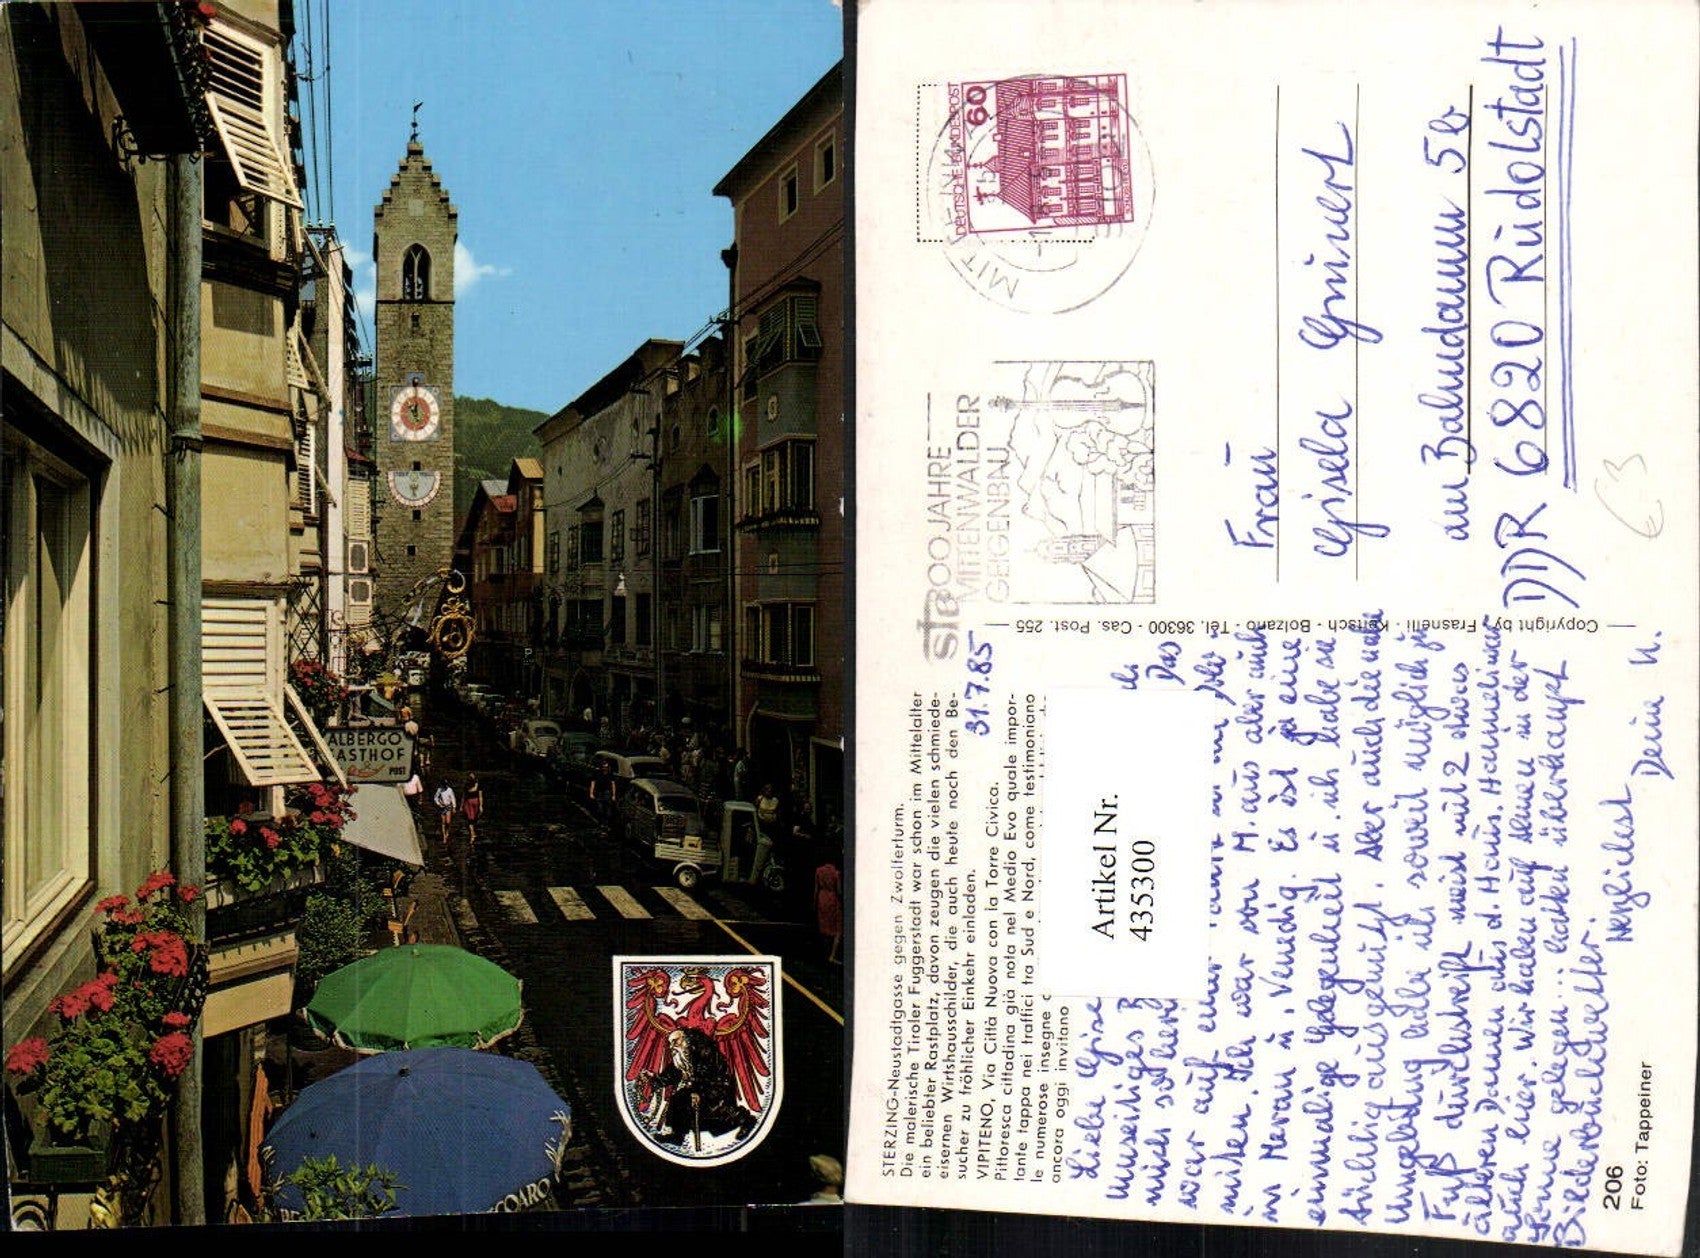 ALBERGO
GASTHOF
POST
DEUTSCHE BUNDESPOST
60
300 JAHRE
MITTENWALDER
GEIGENBAU
STERZING-Neustadtgasse gegen Zwölferturm.
Die malerische Tiroler Fuggerstadt war schon im Mittelalter
ein beliebter Rastplatz, davon zeugen die vielen schmiede-
eisernen Wirtshausschilder, die auch heute noch den Be-
sucher zu fröhlicher Einkehr einladen.
VIPITENO, Via Città Nuova con la Torre Civica.
Pittoresca cittadina già nota nel Medio Evo quale impor-
tante tappa nei traffici tra Sud e Nord, come testimoniano
le numerose insegne
ancora oggi invitano
31.7.85
Liebe
Das
mich so
war auf
Ich war von M. aus aber auch
in Meran u. Venedig. Es ist ja eine
einmalige Gelegenheit u. ich habe sie
tüchtig ausgenutzt. Aber auch die nahe
Umgebung habe ich soweit möglich zu
Fuß durchstreift meist mit 2 etwas
älteren Damen aus d. Haus. Hannelie war
auch hier. Wir haben auf in der
Sonne gelegen... hatten überhaupt
Bilderbuchwetter.
Herzlichst
Deine U.
Artikel Nr.
435300
Copyright by Frasnelli - Keitsch - Bolzano - Tel. 36300 - Cas. Post. 255
Frau
Gisela
am Bahndamm 5b
DDR 6820 Rudolstadt
€ 3
206
Foto: Tappeiner